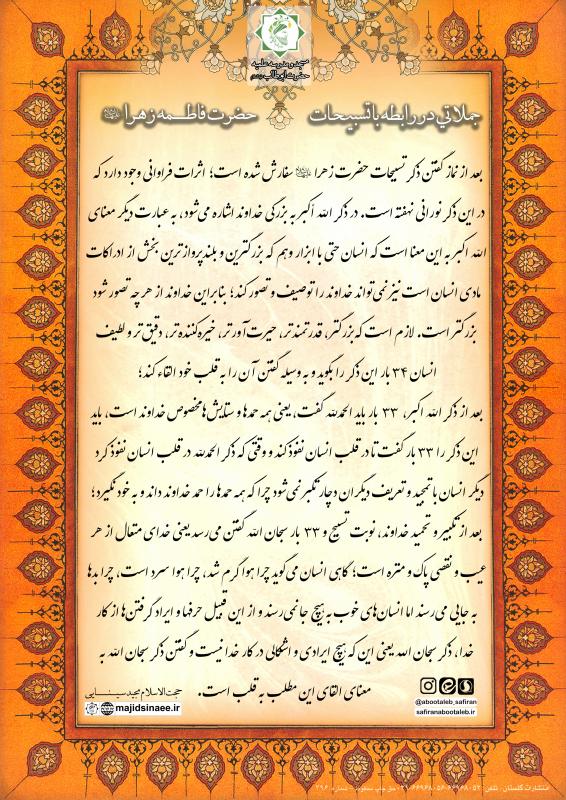 مسجد و مدرسه علمیه
حضرت ابوطالب
جملاتی در رابطه با تسبیحات حضرت فاطمه زهرا
بعد از نماز گفتن ذکر تسبیحات حضرت زهرا سفارش شده است؛ اثرات فراوانی وجود دارد که
در این ذکر نورانی نهفته است. در ذکر الله أکبر به بزرگی خداوند اشاره می‌شود، به عبارت دیگر معنای
الله اکبر به این معنا است که انسان حتی با ابزار وهم که بزرگترین و بلند پروازترین بخش از ادراکات
مادی انسان است نیز نمی‌تواند خداوند را توصیف و تصور کند؛ بنابراین خداوند از هر چه تصور شود
بزرگتر است. لازم است که بزرگتر، قدرتمندتر، حیرت‌آورتر، خیره‌کننده‌تر، دقیق‌تر و لطیف
انسان ۳۴ بار این ذکر را بگوید و به وسیله گفتن آن را به قلب خود القاء کند؛
بعد از ذکر الله اکبر، ۳۳ بار باید الحمدلله گفت، یعنی همه حمدها و ستایش‌ها مخصوص خداوند است، باید
این ذکر را ۳۳ بار گفت تا در قلب انسان نفوذ کند و وقتی که ذکر الحمدلله در قلب انسان نفوذ کرد
دیگر انسان با تمجید و تعریف دیگران دچار تکبر نمی‌شود چرا که همه حمدها را حمد خداوند داند و به خود نگیرد؛
بعد از تکبیر و تحمید خداوند، نوبت تسبیح و ۳۳ بار سبحان الله گفتن می‌رسد یعنی خدای متعال از هر
عیب و نقصی پاک و منزه است؛ گاهی انسان می‌گوید چرا هوا گرم شد، چرا هوا سرد است، چرا بدها
به جایی می‌رسند اما انسان‌های خوب به هیچ جا نمی‌رسند و از این قبیل حرفها و ایراد گرفتن‌ها از کار
خدا، ذکر سبحان الله یعنی این که هیچ ایرادی و اشکالی در کار خدا نیست و گفتن ذکر سبحان الله به
معنای القای این مطلب به قلب است.
حجت الاسلام مجید سینایی
majidsinaee.ir
@abootaleb_safiran
safiranabootaleb.ir